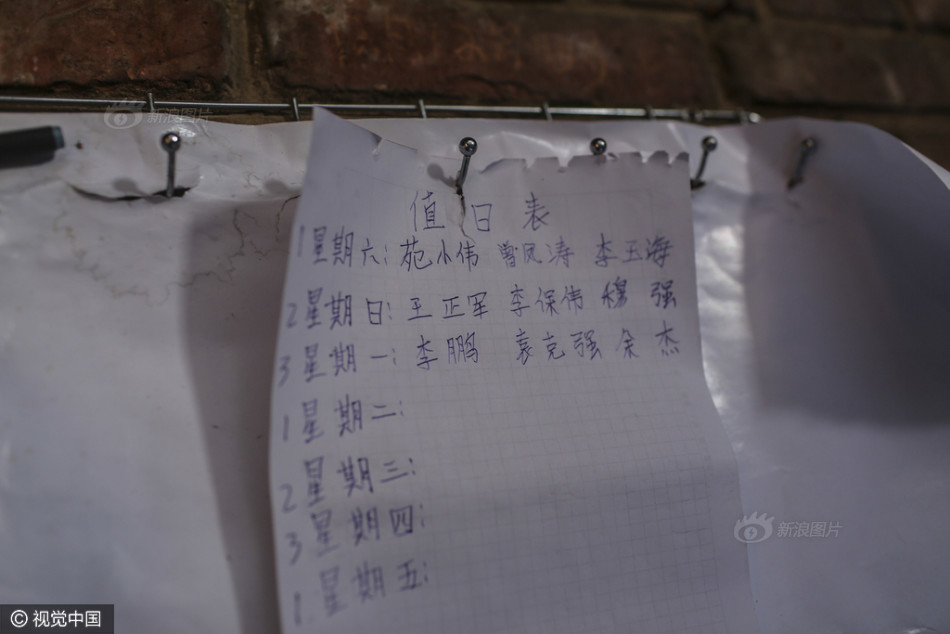 新浪图片
值日表
1星期六: 苑小伟 曾凤涛 李玉海
2星期日: 王正军 李保伟 穆 强
3星期一: 李鹏 袁克强 余杰
1星期二:
2星期三:
3星期四:
新浪图片
1星期五:
© 视觉中国